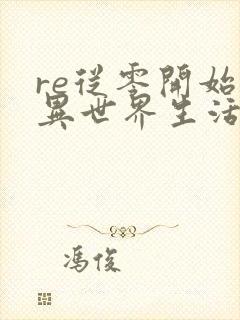 re從零開始
異世界生活
馮俊